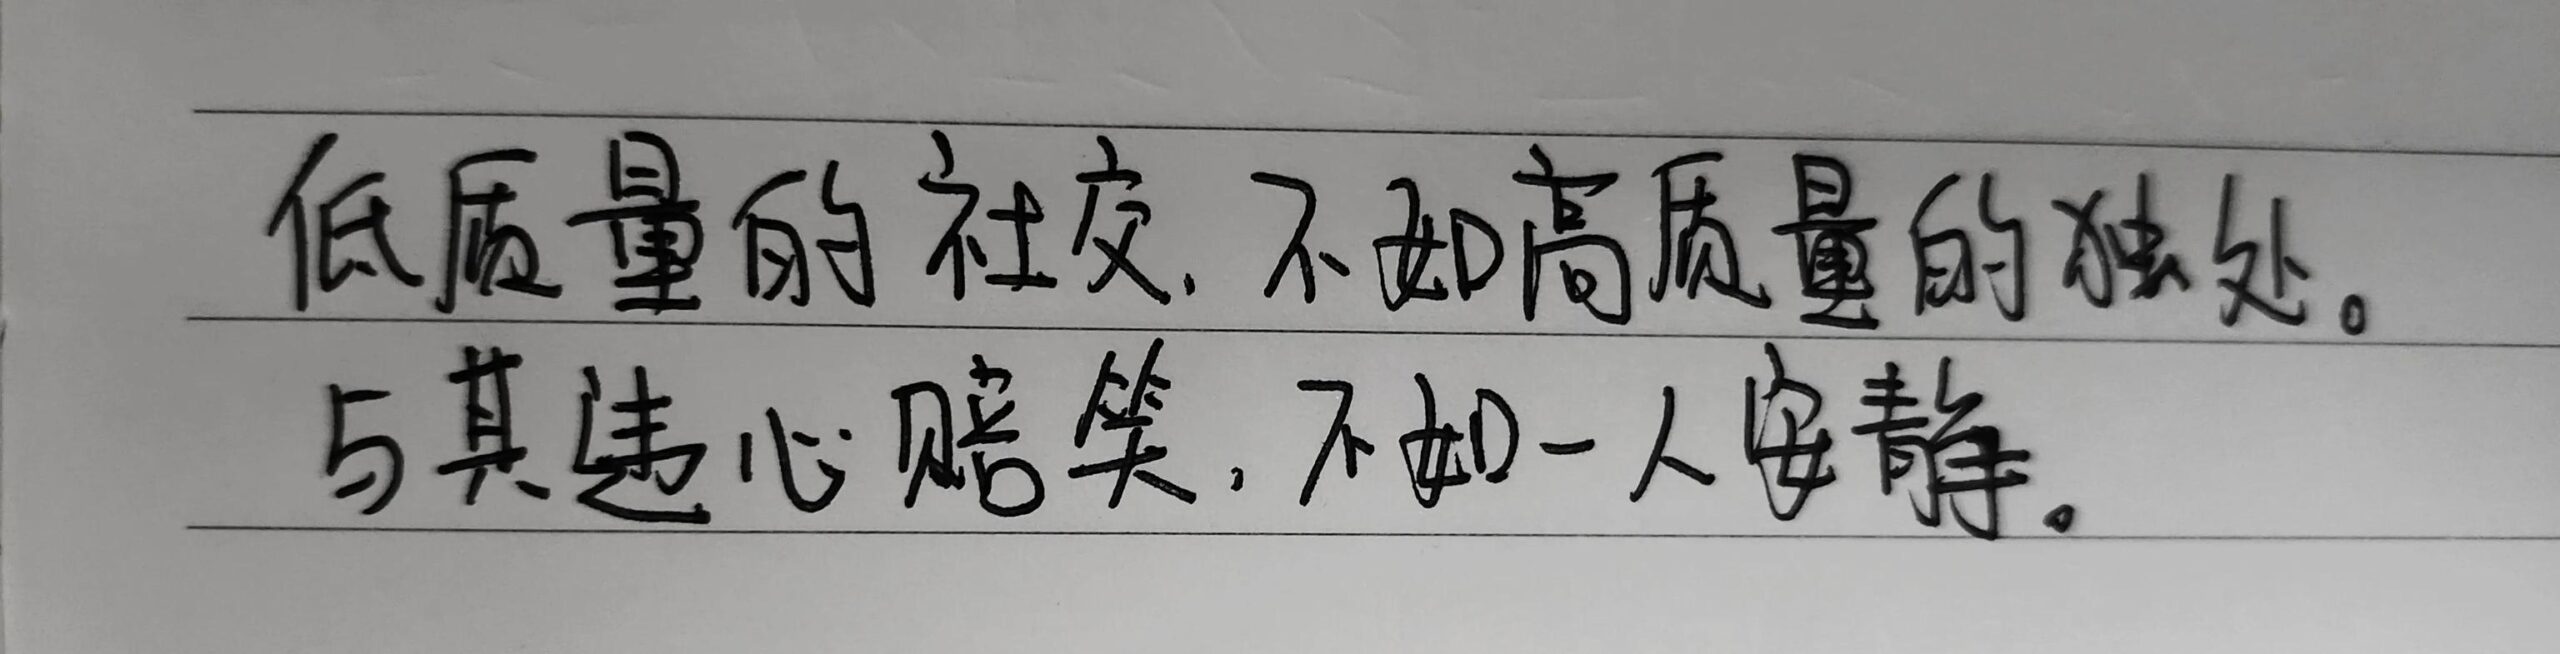 低质量的社交，不如高质量的独处。
与其违心赔笑，不如一人安静。